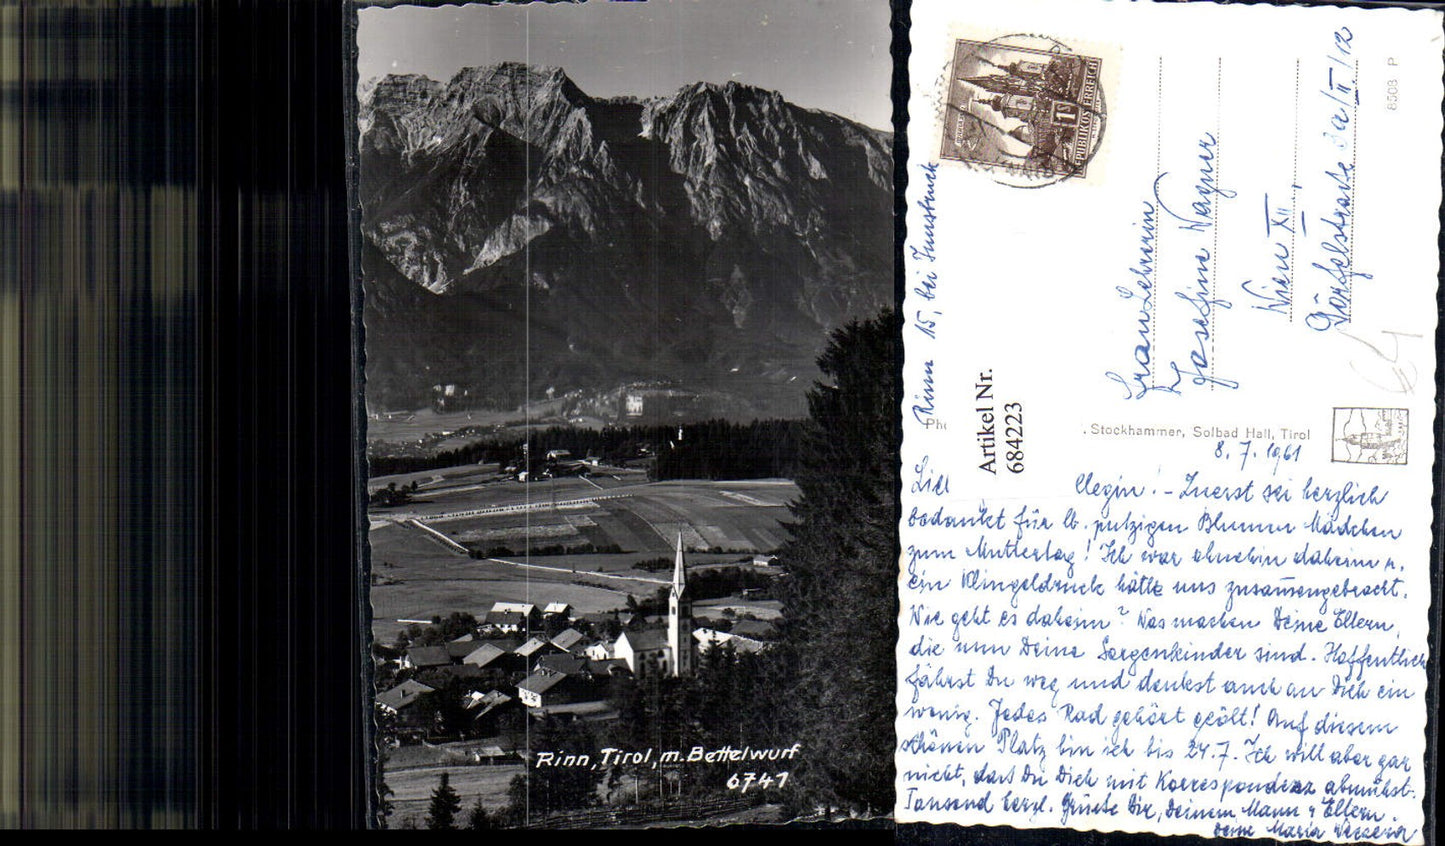 Rinn, Tirol, m. Bettelwurf
6741
REPUBLIK ÖSTERREICH
1
8508 P
Rinn 15, bei Innsbruck
Artikel Nr.
684223
Frau Lehrerin
Josefine Wagner
Wien XII,
. Stockhammer, Solbad Hall, Tirol
8. 7. 1961
Zuerst sei herzlich
bedankt für lb. putziges Blumen Mädchen
zum Muttertag! Ich war ohnehin daheim u.
ein Klingeldruck hätte uns zusammengebracht.
Wie geht es daheim? Was machen Deine Eltern,
die nun Deine Sorgenkinder sind. Hoffentlich
fährst Du weg und denkst auch an Dich ein
wenig. Jedes Rad gehört geölt! Auf diesem
schönen Platz bin ich bis 24.7. Ich will aber gar
nicht, daß Du Dich mit Korrespondenz abmühst.
Tausend herzl. Grüße Dir, Deinem Mann u Eltern.
Deine Maria